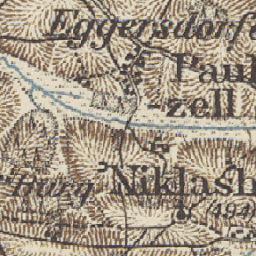 Eggersdorf
Paul
zell
burg
Niklash
(494